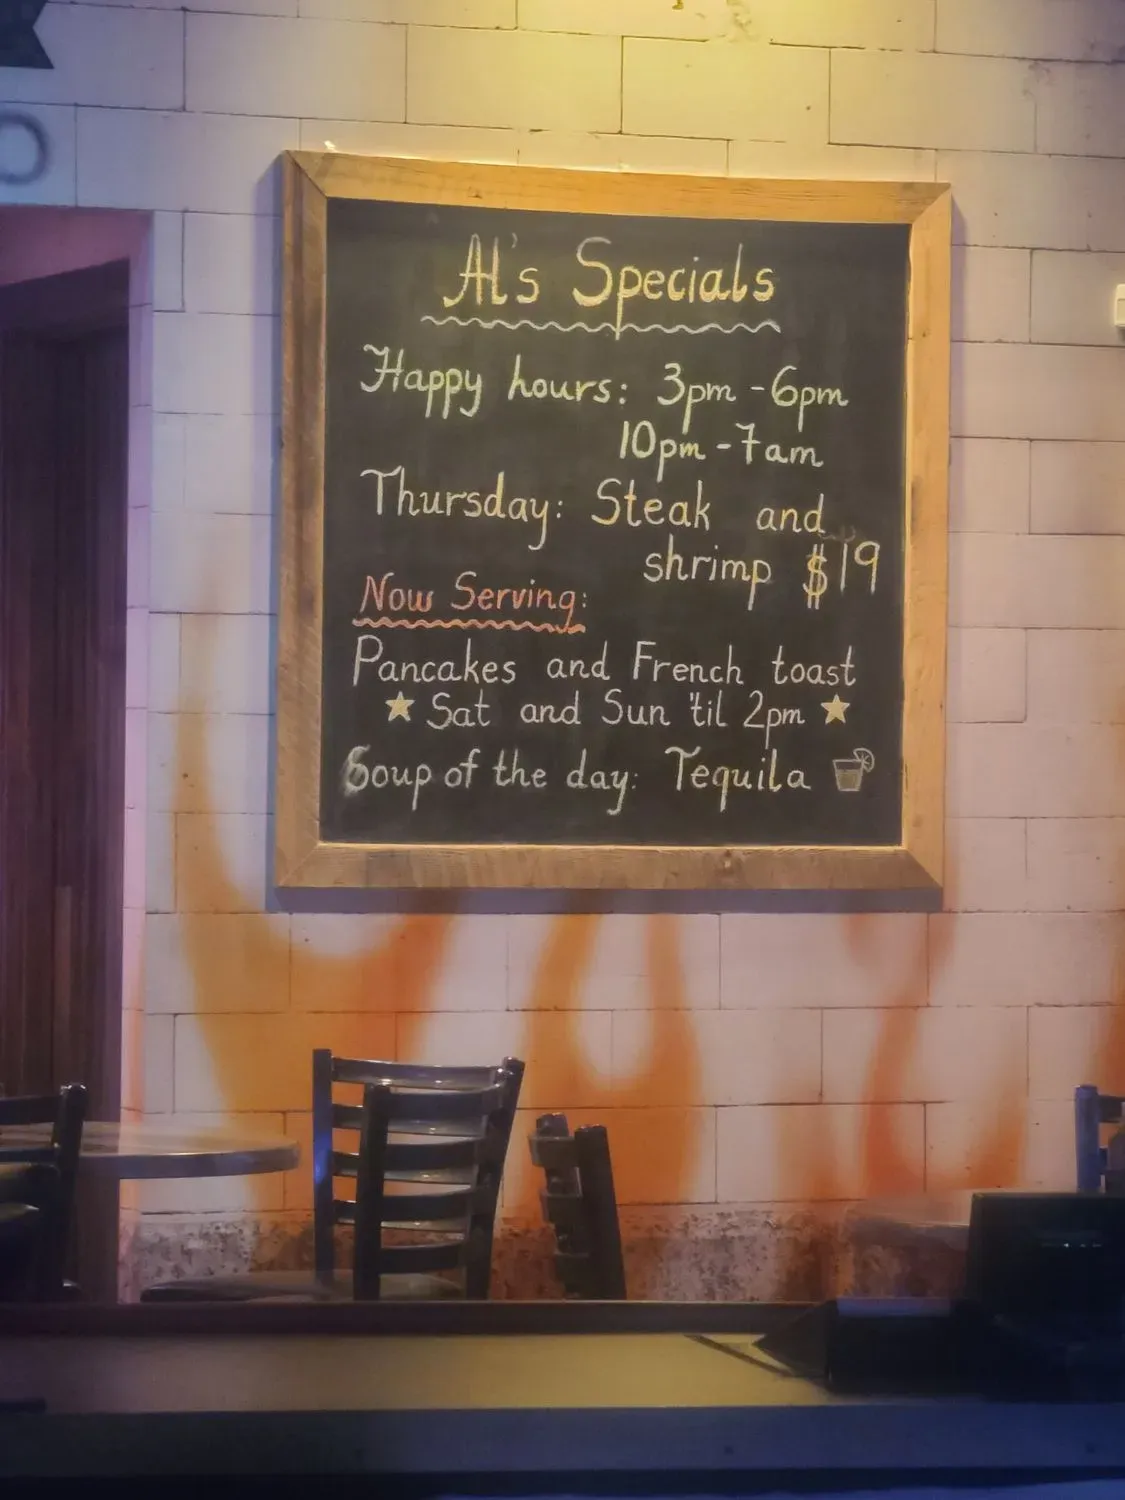 Al's Specials
Happy hours: 3pm - 6pm
10pm - 7am
Thursday: Steak and
shrimp $19
Now Serving:
Pancakes and French toast
Sat and Sun 'til 2pm
Soup of the day: Tequila